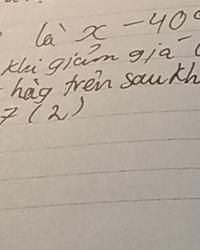 là x - 40%
khi giảm giá (
hàg trên sau kh
7 (2)